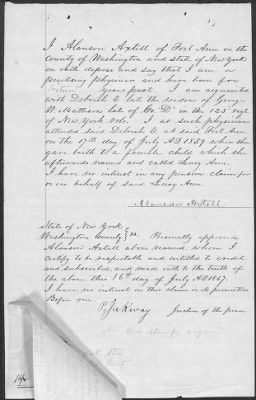 I Alanson Axtell of Fort Ann in the
County of Washington and State of New York
on oath depose and say that I am a
practising physician and have been for
years past. I am acquainted
with Deborah E late the widow of George
W. Mattison late of Co. D. in the 123d regt
of New York Vols. I as such physician
attended said Deborah E. at said Fort Ann
on the 17th day of July A.D 1859 when she
gave birth to a female child which she
afterwards named and called Lucy Ann.
I have no interest in any pension claim for
or in behalf of said Lucy Ann
Alanson Axtell
State of New York
Washington County } ss. Personally appeared
Alanson Axtell above named whom I
certify to be respectable and entitled to credit.
and subscribed, and made oath to the truth of
the above this 16th day of July A.D 1867.
I have no interest in this claim or its prosecution
Before me
P. Jakway Justice of the peace